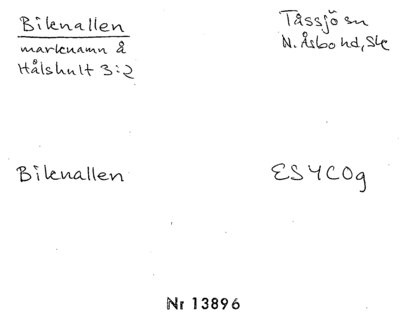 Biknallen
marknamn å
Hålshult 3:2
Tåssjö sn
N. Åsbo hd, Sk
Biknallen
ES4C0g
Nr 13896